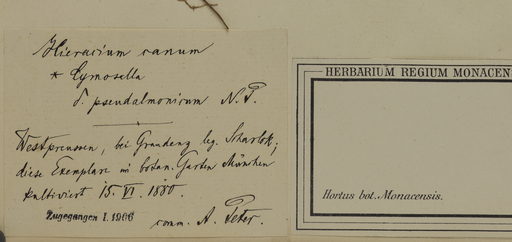 Hieracium canum
* Cymosella
δ. pseudalmonicum N. P.
Westpreussen, bei Graudenz leg. Scharlok;
diese Exemplare im botan. Garten München
kultiviert 15. VI. 1880.
Zugegangen I. 1906
comm. A. Peter.
HERBARIUM REGIUM MONACEN
Hortus bot. Monacensis.